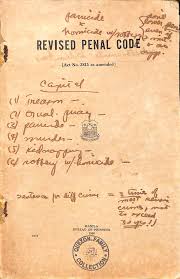 parricide
homicide w/ robbery
REVISED PENAL CODE
(Act No. 3815 as amended)
Capital
(1) treason
(2) qual. piracy
(3) parricide
(4) murder
(5) kidnapping
(6) robbery w/ homicide
sentence for diff crimes = 3 times of
most severe
to exceed
MANILA
BUREAU OF PRINTING
QUEZON FAMILY
COLLECTION